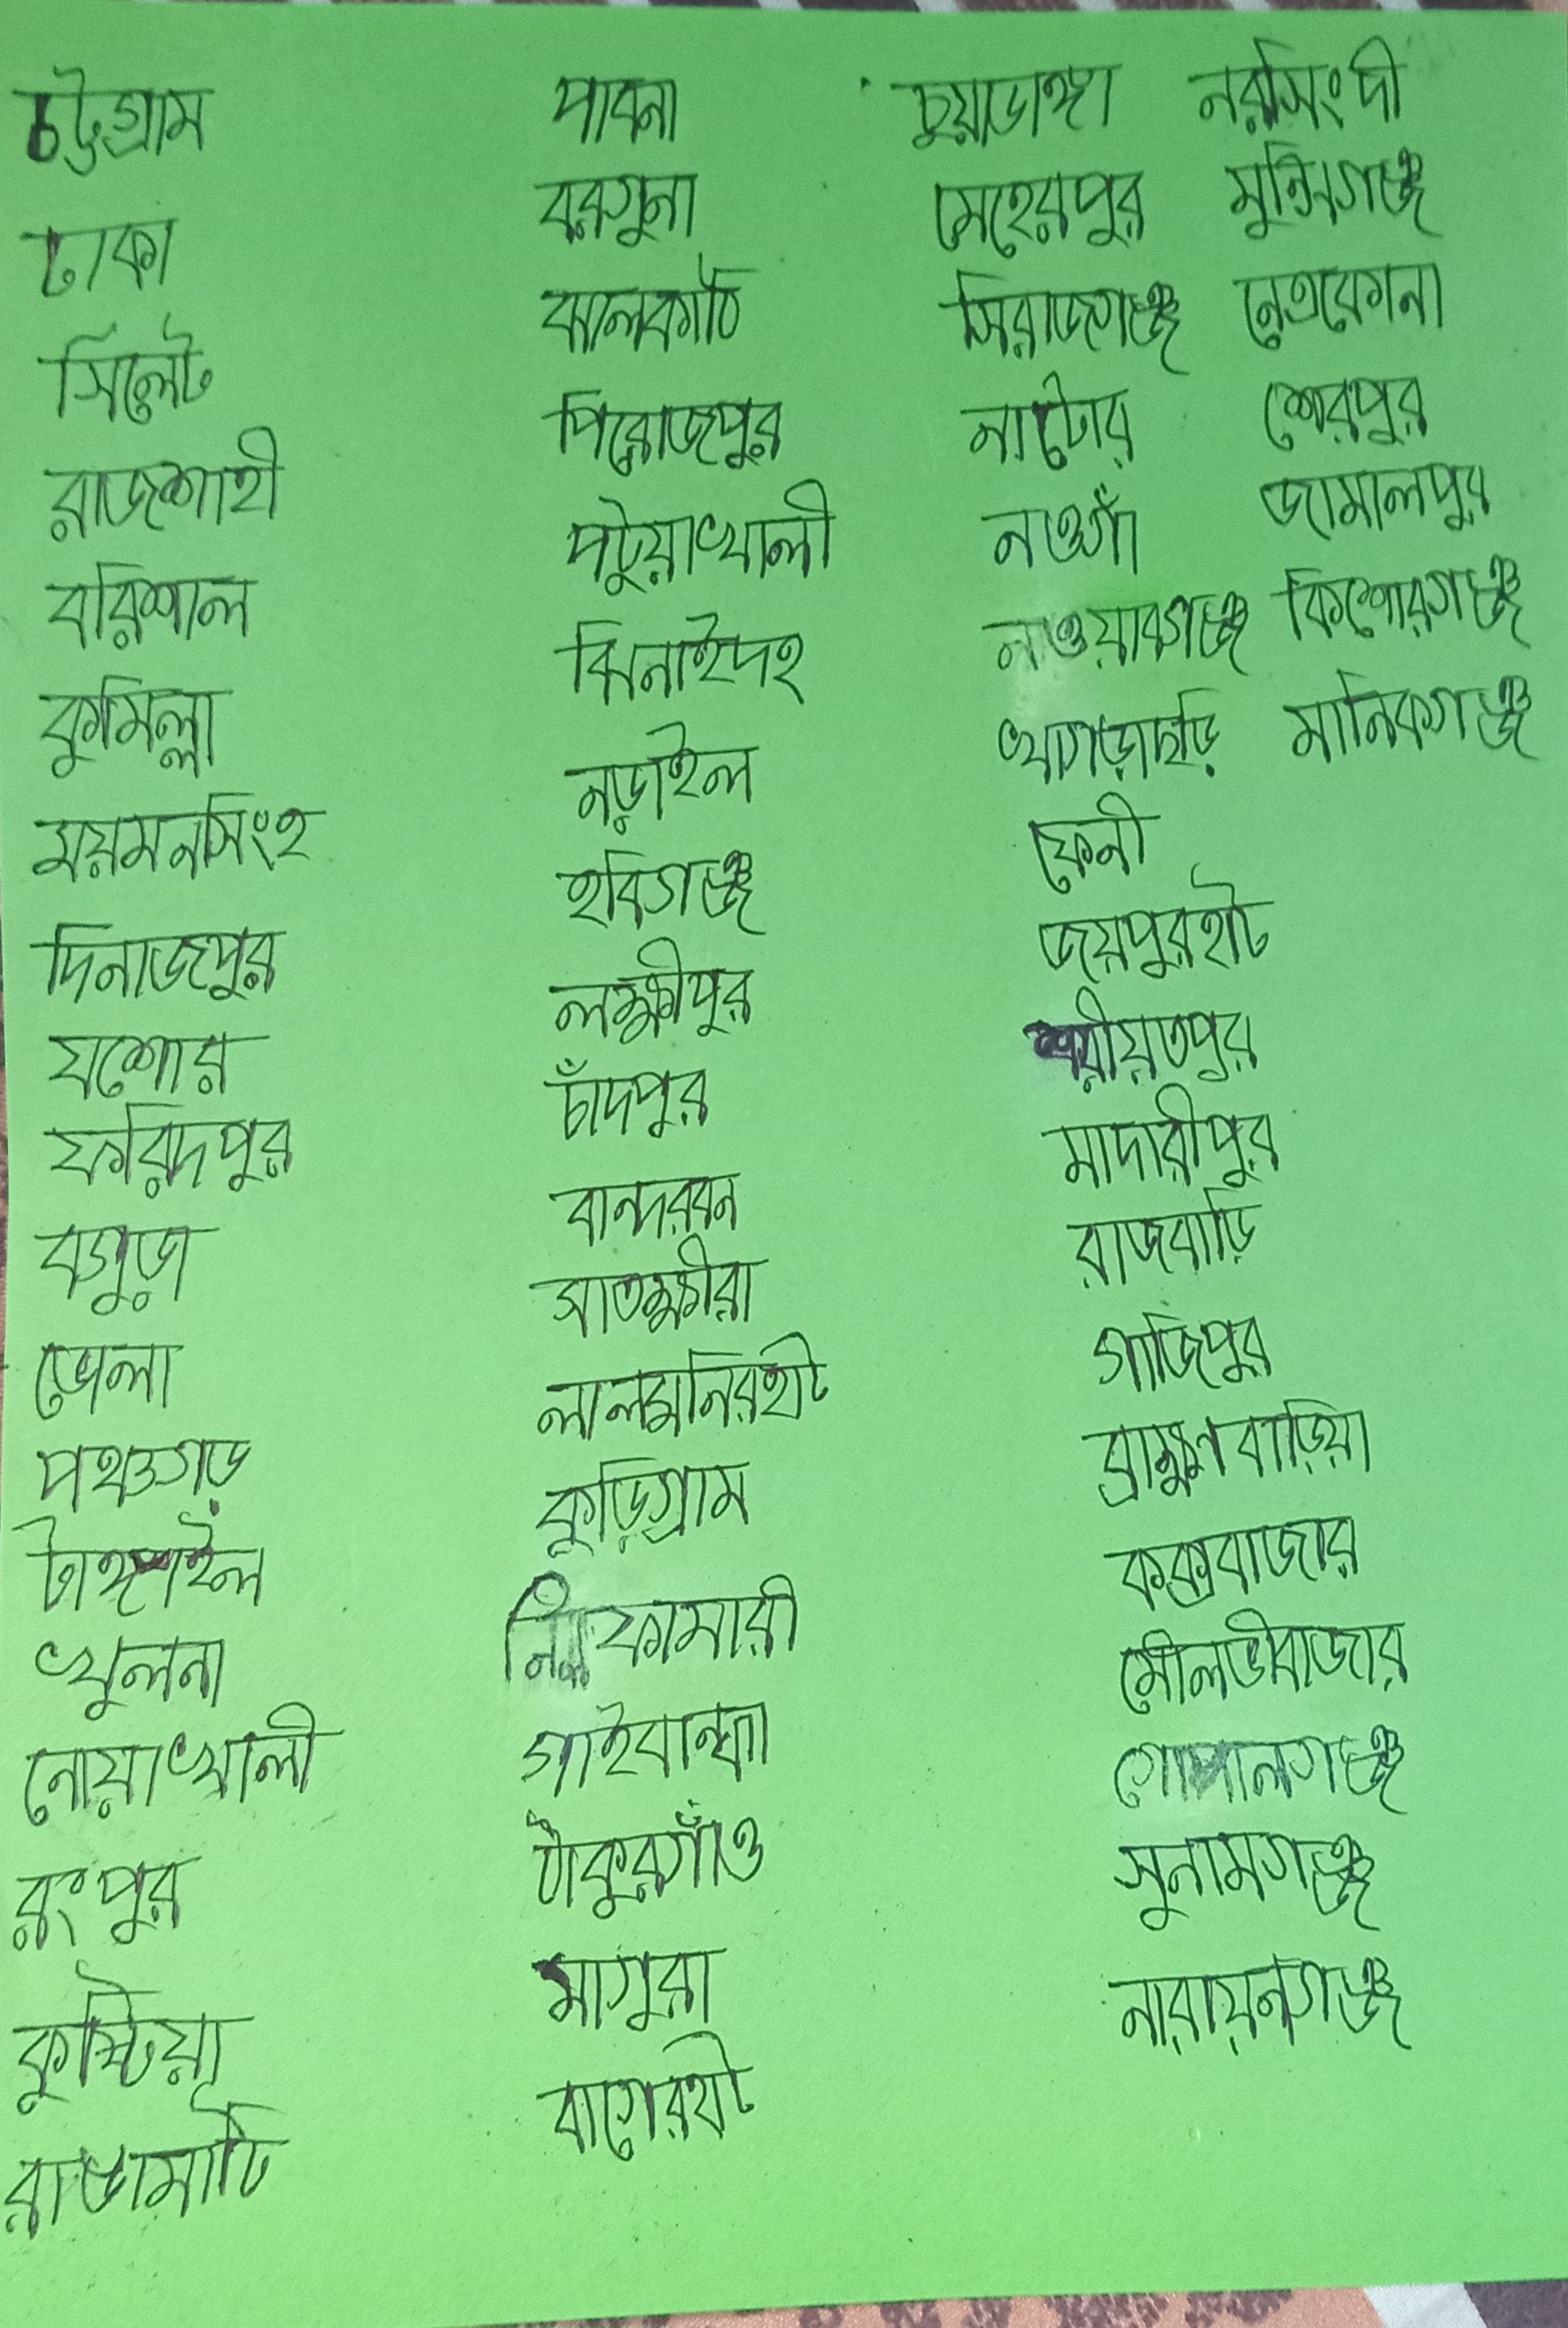 চট্টগ্রাম
ঢাকা
সিলেট
রাজশাহী
বরিশাল
কুমিল্লা
ময়মনসিংহ
দিনাজপুর
যশোর
ফরিদপুর
বগুড়া
ভোলা
পঞ্চগড়
টাঙ্গাইল
খুলনা
নোয়াখালী
রংপুর
কুষ্টিয়া
রাঙামাটি
পাবনা
বরগুনা
ঝালকাঠি
পিরোজপুর
পটুয়াখালী
ঝিনাইদহ
নড়াইল
হবিগঞ্জ
লক্ষ্মীপুর
চাঁদপুর
বান্দরবন
সাতক্ষীরা
লালমনিরহাট
কুড়িগ্রাম
নিলফামারী
গাইবান্ধা
ঠাকুরগাঁও
মাগুরা
বাগেরহাট
চুয়াডাঙ্গা
মেহেরপুর
সিরাজগঞ্জ
নাটোর
নওগাঁ
নাওয়াবগঞ্জ
খাগড়াছড়ি
ফেনী
জয়পুরহাট
শরীয়তপুর
মাদারীপুর
রাজবাড়ি
গাজিপুর
ব্রাহ্মণবাড়িয়া
কক্সবাজার
মৌলভীবাজার
গোপালগঞ্জ
সুনামগঞ্জ
নারায়নগঞ্জ
নরসিংদী
মুন্সিগঞ্জ
নেত্রকোনা
শেরপুর
জামালপুর
কিশোরগঞ্জ
মানিকগঞ্জ